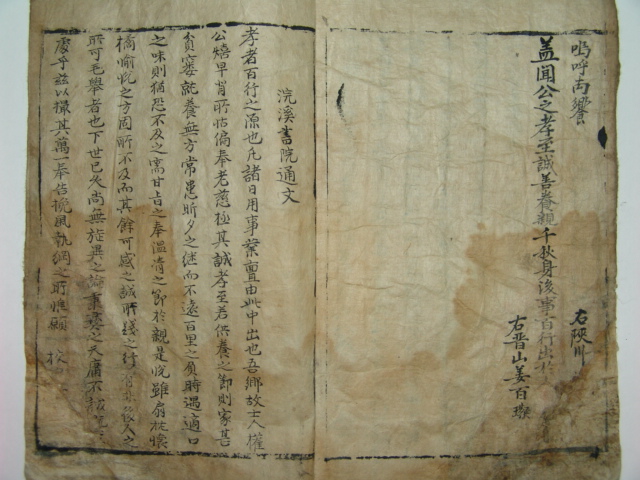 嗚呼尚饗
右陜川
盖聞公之孝至誠善養親千秋身後事百行出於
右晋山姜百
浣溪書院通文
孝者百行之源也凡諸日用事業亶由此中出也吾鄉故士人權
公熺早背所怙偏奉老慈極其誠孝至若供養之節則家甚
貧窶就養無方常患昕夕之継而不遠百里之負時遇適口
之味則猶恐不及之需甘旨之奉溫凊之節於親是悅雖扇枕懷
橘喻悅之方固所不及而其餘可感之誠所踐之行
所可毛舉者也下世已久尚無旌異之 秉彜之天庸不
慮乎玆以樶其萬一奉告挽風執綱之所惟願